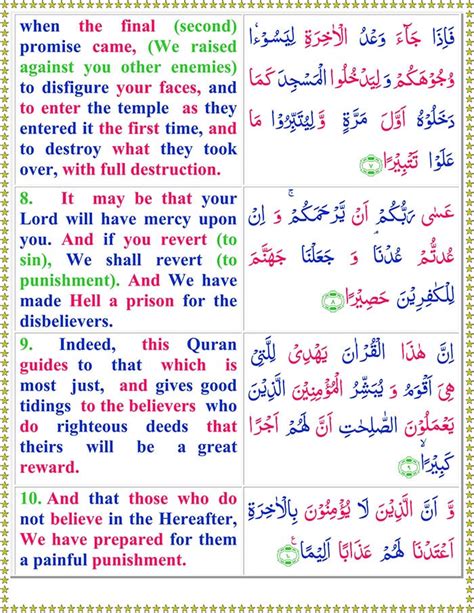 when the final (second)
promise came, (We raised
against you other enemies)
to disfigure your faces, and
to enter the temple as they
entered it the first time, and
to destroy what they took
over, with full destruction.
فَاِذَا جَآءَ وَعْدُ الْاٰخِرَةِ لِيَسُوْٓءٗا
وُجُوْهَكُمْ وَ لِيَدْخُلُوا الْمَسْجِدَ كَمَا
دَخَلُوْهُ اَوَّلَ مَرَّةٍ وَّ لِيُتَبِّرُوْا مَا
عَلَوْا تَتْبِيْرًا ﴿۷﴾
8. It may be that your
Lord will have mercy upon
you. And if you revert (to
sin), We shall revert (to
punishment). And We have
made Hell a prison for the
disbelievers.
عَسٰى رَبُّكُمْ اَنْ يَّرْحَمَكُمْ ۚ وَ اِنْ
عُدْتُّمْ عُدْنَا وَ جَعَلْنَا جَهَنَّمَ
لِلْكٰفِرِيْنَ حَصِيْرًا ﴿۸﴾
9. Indeed, this Quran
guides to that which is
most just, and gives good
tidings to the believers who
do righteous deeds that
theirs will be a great
reward.
اِنَّ هٰذَا الْقُرْاٰنَ يَهْدِيْ لِلَّتِيْ
هِيَ اَقْوَمُ وَ يُبَشِّرُ الْمُؤْمِنِيْنَ الَّذِيْنَ
يَعْمَلُوْنَ الصّٰلِحٰتِ اَنَّ لَهُمْ اَجْرًا
كَبِيْرًا ۙ ﴿۹﴾
10. And that those who do
not believe in the Hereafter,
We have prepared for them
a painful punishment.
وَّ اَنَّ الَّذِيْنَ لَا يُؤْمِنُوْنَ بِالْاٰخِرَةِ
اَعْتَدْنَا لَهُمْ عَذَابًا اَلِيْمًا ﴿۱۰﴾